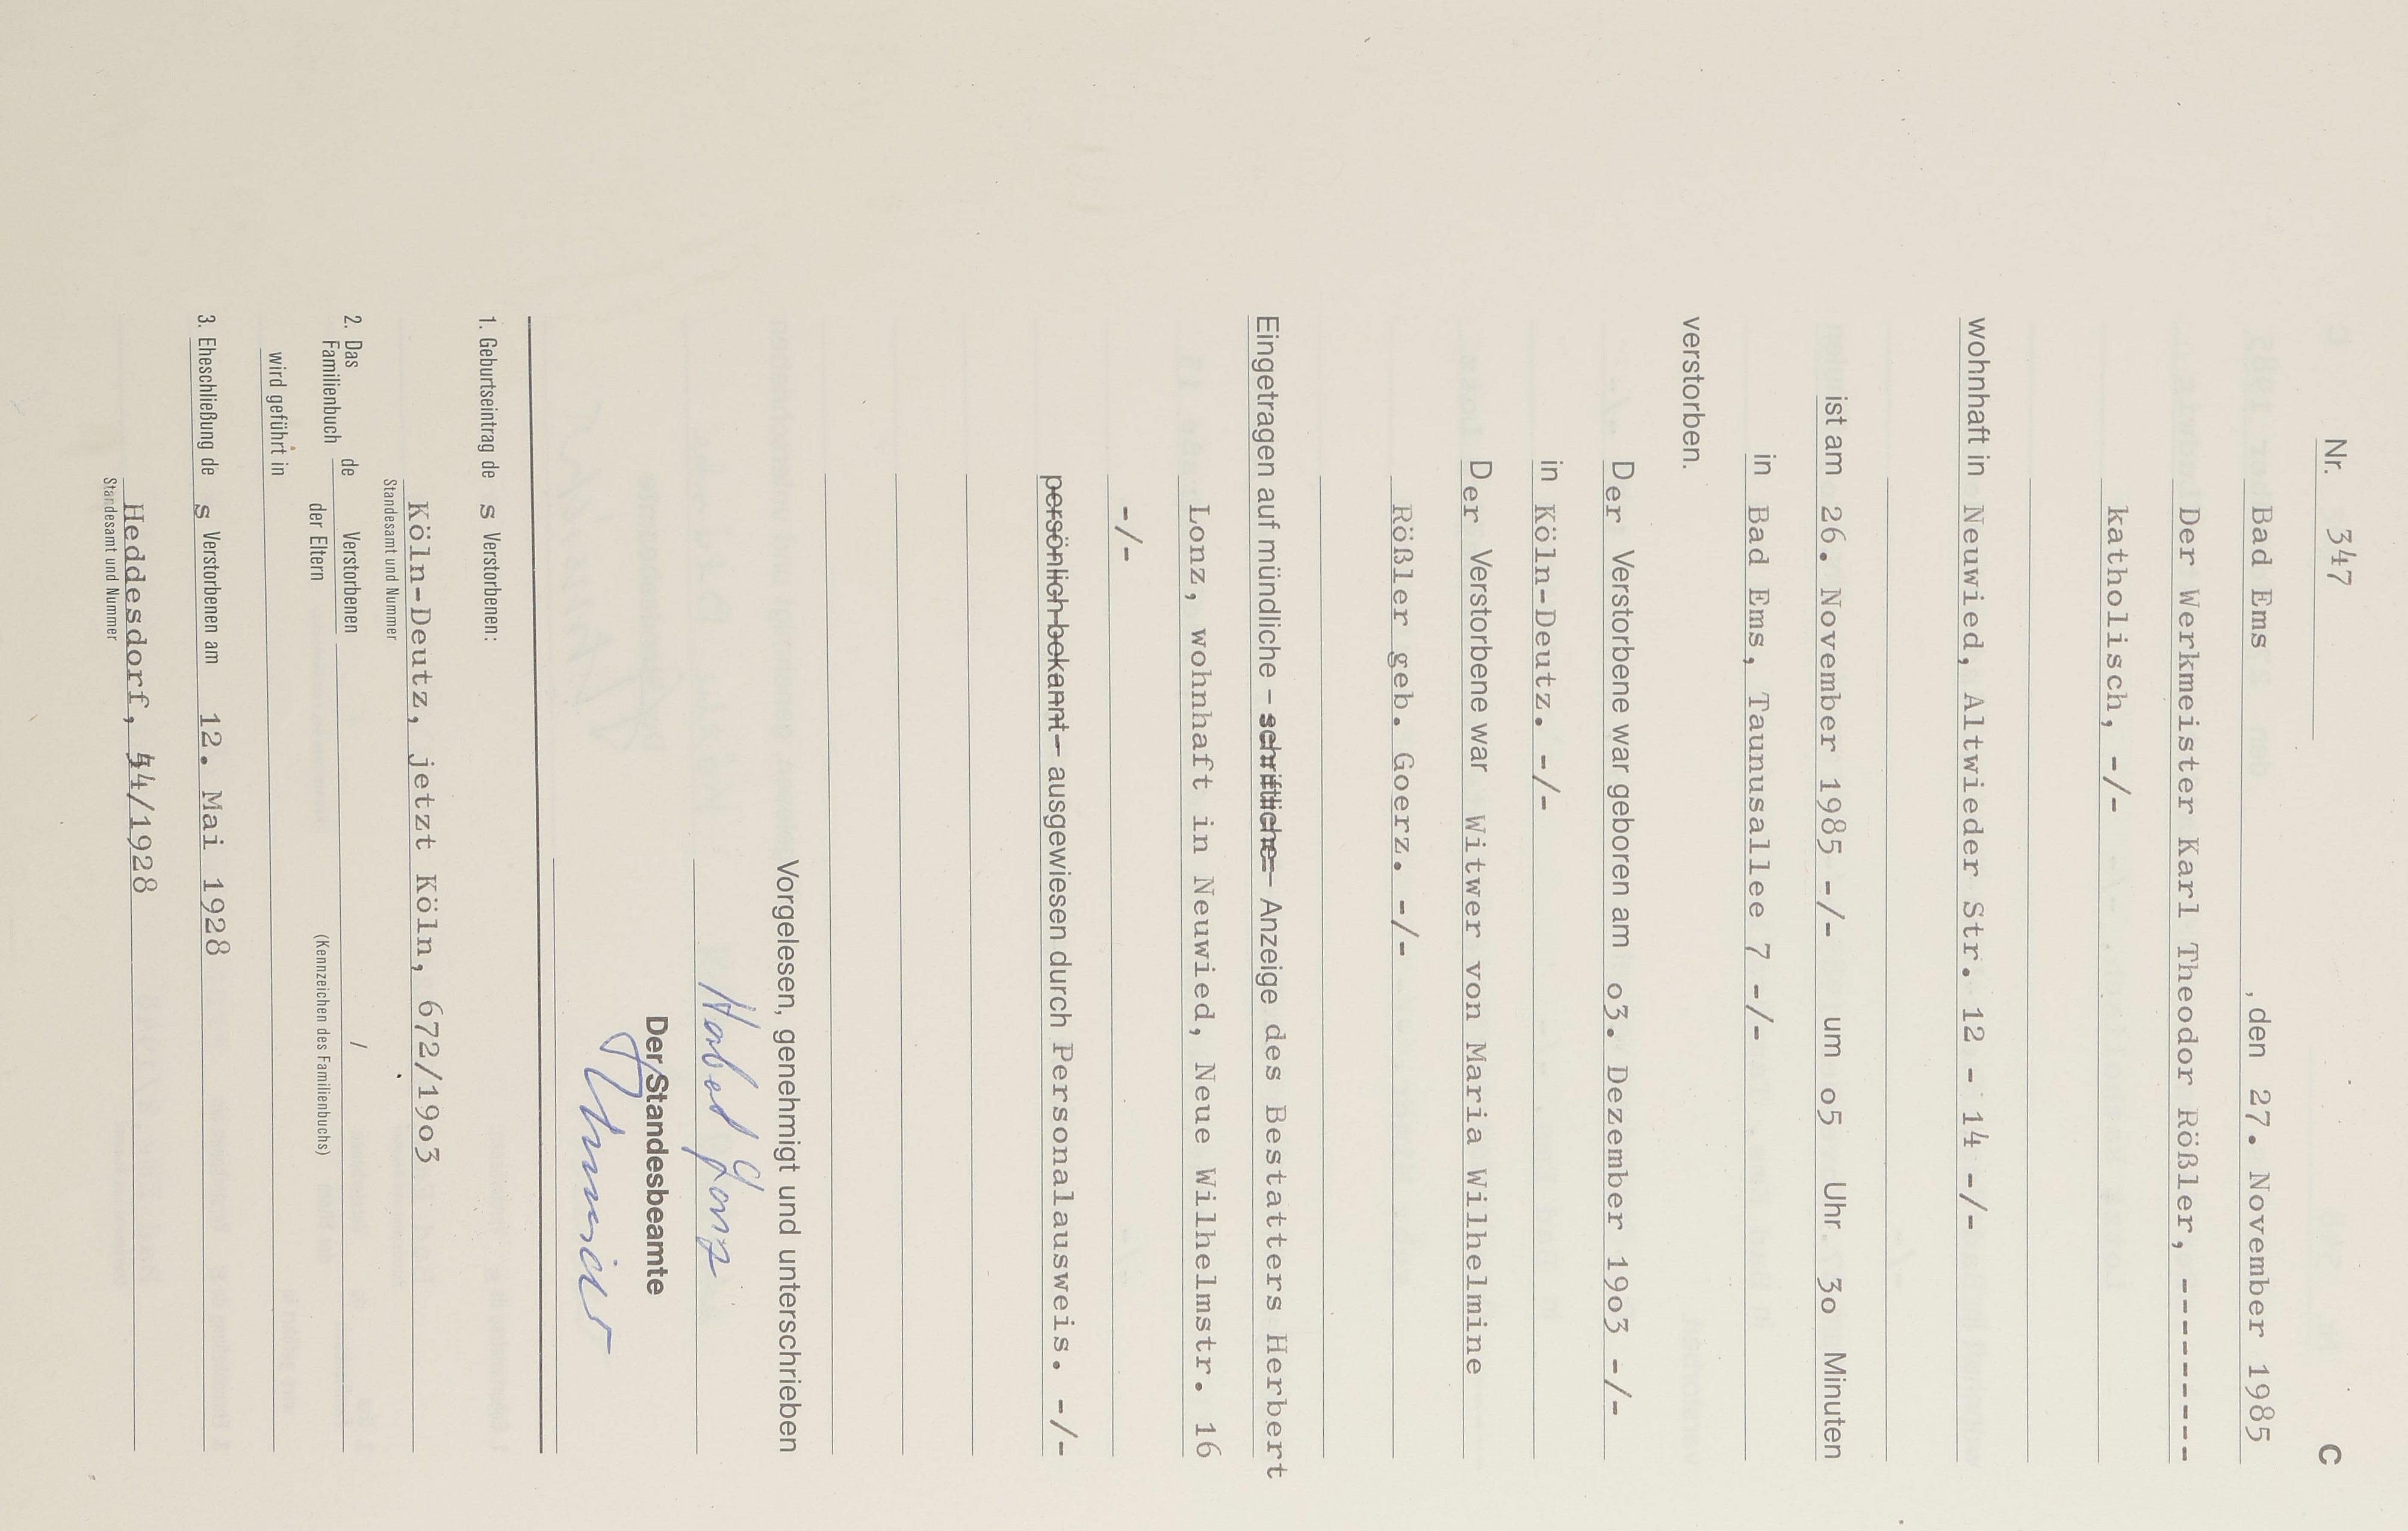 Nr. 347 C
Bad Ems , den 27. November 1985
Der Werkmeister Karl Theodor Rößler, --------
katholisch, -/-
wohnhaft in Neuwied, Altwieder Str. 12 - 14 -/-
ist am 26. November 1985 -/- um o5 Uhr 3o Minuten
in Bad Ems, Taunusallee 7 -/-
verstorben.
Der Verstorbene war geboren am o3. Dezember 19o3 -/-
in Köln-Deutz. -/-
Der Verstorbene war Witwer von Maria Wilhelmine
Rößler geb. Goerz. -/-
Eingetragen auf mündliche – schriftliche – Anzeige des Bestatters Herbert
Lonz, wohnhaft in Neuwied, Neue Wilhelmstr. 16
-/-
persönlich bekannt – ausgewiesen durch Personalausweis. -/-
Vorgelesen, genehmigt und unterschrieben
Der Standesbeamte
1. Geburtseintrag des Verstorbenen:
Köln-Deutz, jetzt Köln, 672/19o3
Standesamt und Nummer
2. Das Familienbuch de Verstorbenen /
der Eltern (Kennzeichen des Familienbuchs)
wird geführt in
3. Eheschließung des Verstorbenen am 12. Mai 1928
Heddesdorf, 44/1928
Standesamt und Nummer